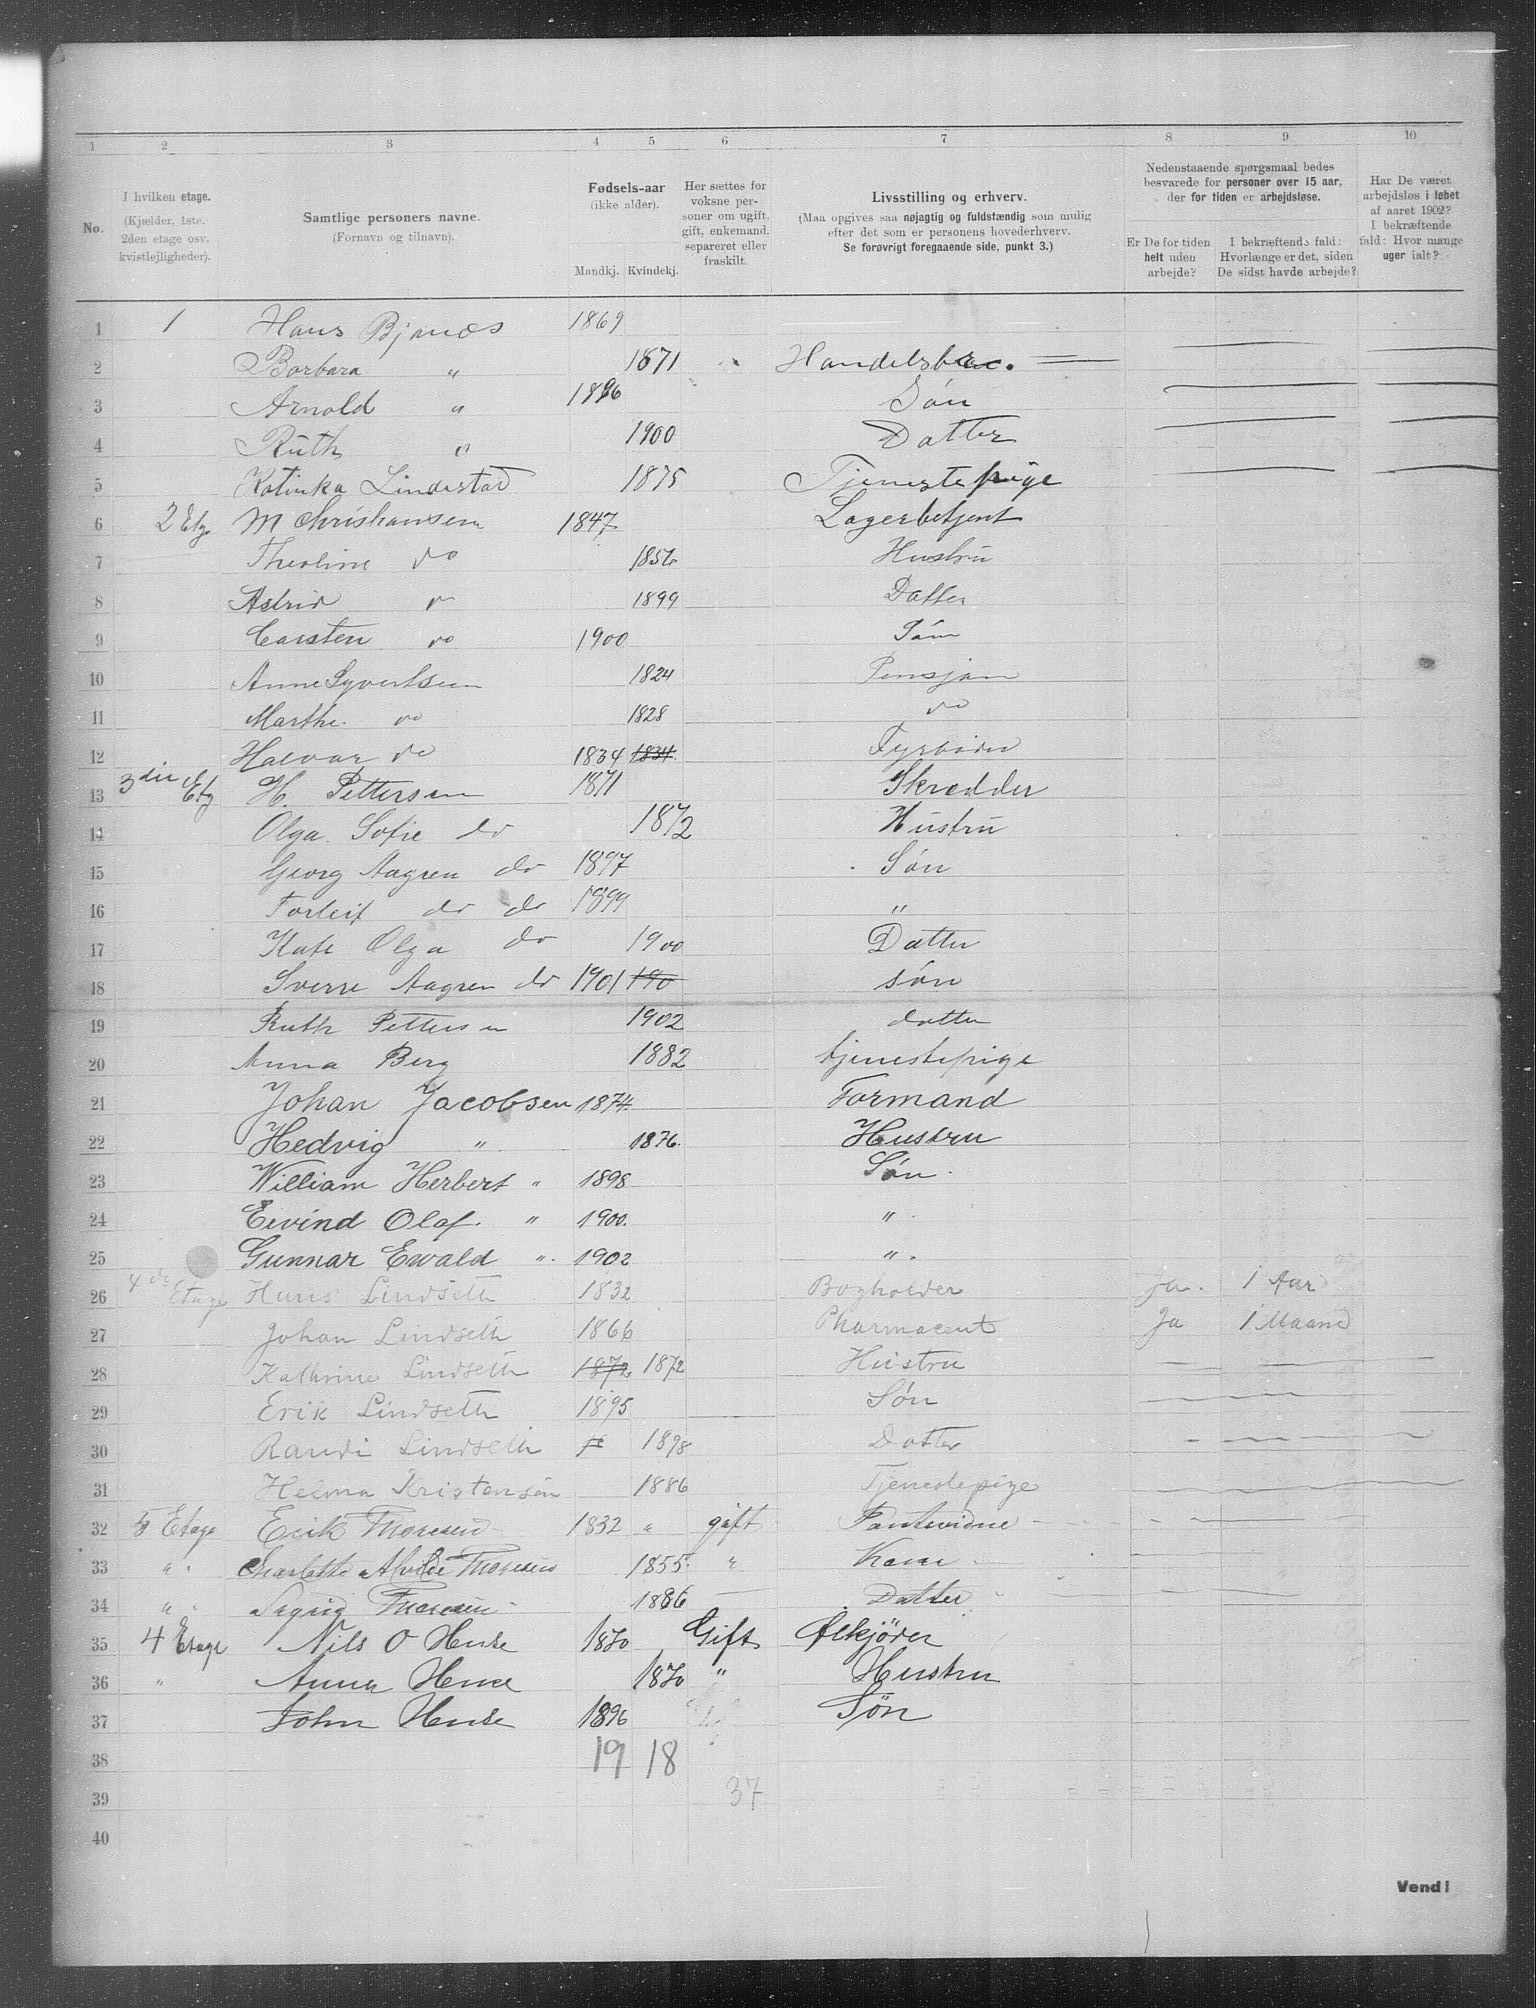 1 2 3 4 5 6 7 8 9 10
No.
I hvilken etage.
(Kjælder, 1ste.
2den etage osv.
kvistlejligheder).
Samtlige personers navne.
(Fornavn og tilnavn).
Fødsels-aar
(ikke alder).
Mandkj. Kvindekj.
Her sættes for
voksne per-
soner om ugift,
gift, enkemand,
separeret eller
fraskilt.
Livsstilling og erhverv.
(Maa opgives saa nøjagtig og fuldstændig som mulig
efter det som er personens hovederhverv.
Se forøvrigt foregaaende side, punkt 3.)
Nedenstaaende spørgsmaal bedes
besvarede for personer over 15 aar,
der for tiden er arbejdsløse.
Er De for tiden
helt uden
arbejde?
I bekræftende fald:
Hvorlænge er det, siden
De sidst havde arbejde?
Har De været
arbejdsløs i løbet
af aaret 1902?
I bekræftende
fald: Hvor mange
uger ialt?
1 1 Hans Bjanæs 1869
2 Borbara " 1871
3 Arnold " 1896 Søn
4 Ruth " 1900 Datter
5 Katinka Lindestad 1875 Tjenestepige
6 2 Etg M Christiansen 1847 Lagerbetjent
7 Theoline do Hustru
8 Astrid do 1899 Datter
9 Carsten do 1900 Søn
10 Anne Syvertsen 1824 Pensjon
11 Marthe do 1828 do
12 Halvar do 1834 1834 Fyrbøder
13 3die Etg H. Pettersen 1871 Skrædder
14 Olga Sofie do 1872 Hustru
15 Georg Aagren do 1897 Søn
16 Torleif do do 1899 "
17 Kate Olga do 1900 Datter
18 Sverre Aagren do 1901 190 søn
19 Ruth Pettersen 1902 datter
20 Anna Berg 1882 tjenestepige
21 Johan Jacobsen 1874. Formand
22 Hedvig " 1876. Hustru
23 William Herbert " 1898 Søn.
24 Eivind Olaf. " 1900. "
25 Gunnar Ewald " 1902 "
26 4de Etage Hans Lindseth 1832 Bogholder Ja. 1 Aar
27 Johan Lindseth 1866 Pharmaceut Ja 1 Maaned
28 Kathrine Lindseth 1872 1872 Hustru
29 Erik Lindseth 1895 Søn
30 Randi Lindseth 1898 Datter
31 Helma Kristensen 1886 Tjenestepige
32 5 Etage Erik Thoresen 1832 " gift
33 " " Charlotte Alvilde Thoresen 1855 " Kone
34 " " Sigrid Thoresen 1886 Datter
35 4 Etage Nils O Huse 1870 Gift Ølkjører
36 " Anna Huse 1870 " Hustru
37 John Huse 1896 Søn
38 19 18
39 37
40
Vend!